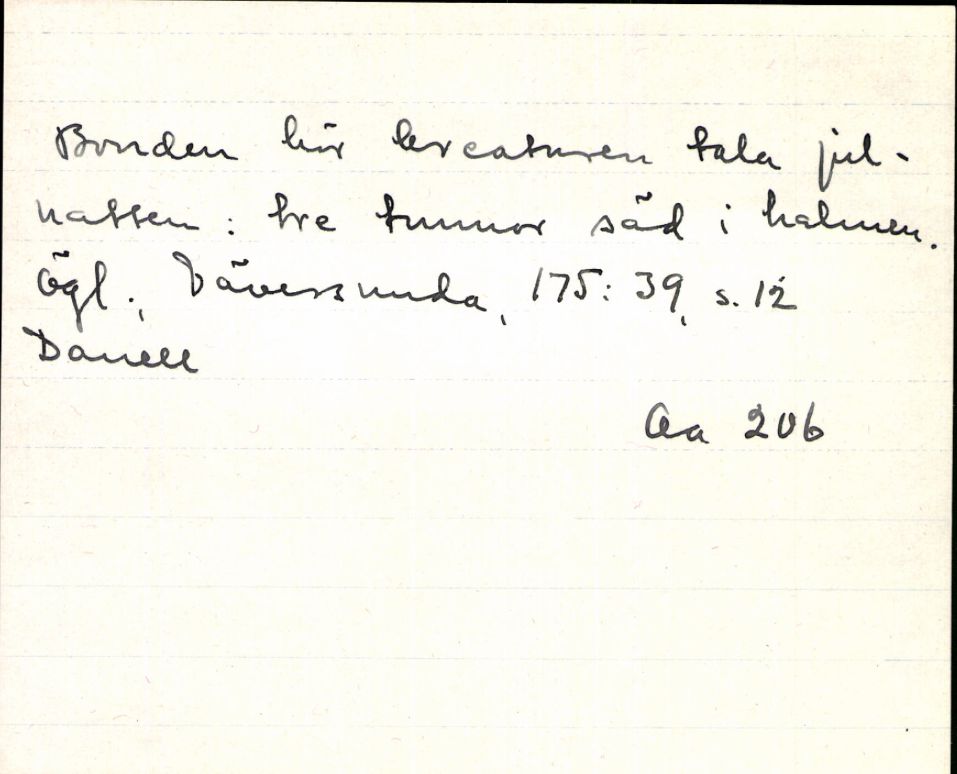 Bonden hör kreaturen tala jul-
natten: tre tunnor säd i halmen.
Ögl., Väversunda, 175:39, s. 12
Danell
Aa 206